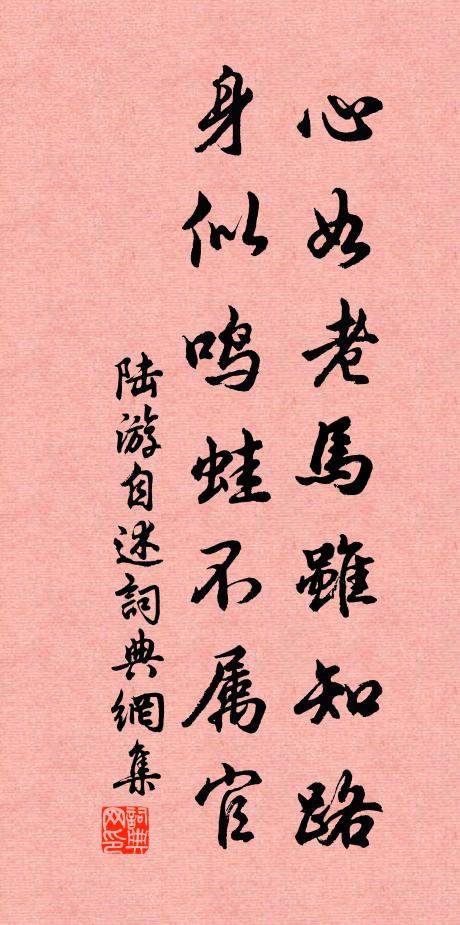 心如老馬雖知路
身似鸣蛙不属官
陆游自述詞典網集
詞典网印